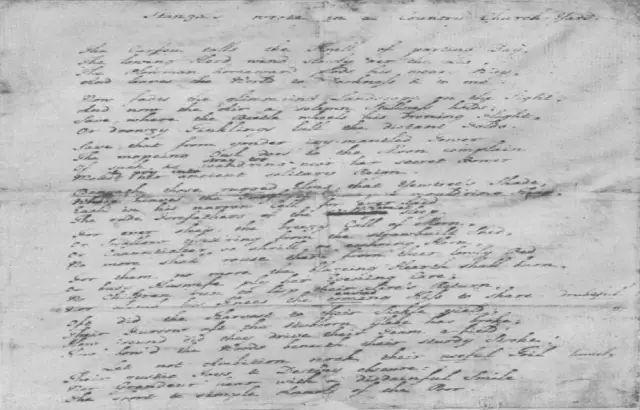 Stanza's wrote in a Country Church Yard
The Curfew tolls the Knell of parting Day,
The lowing Herd wind slowly o'er the
The Plowman homeward plods his weary Way,
And leaves the World to Darkness & to me.
Now fades the glimmering Landscape on the Sight,
And now the Air a solemn Stillness holds;
Save, where the Beetle wheels his droning Flight,
Or drowsy Tinklings lull the distant Folds.
Save that from yonder ivy-mantled Tower
The mopeing Owl does to the Moon complain
Of such as wandring near her secret Bower
her ancient solitary Reign.
Beneath those rugged Elms, that Yewtree's Shade,
Where heaves the Turf in many a mould'ring Heap
Each in his narrow Cell for ever laid
The rude Forefathers of the
For ever sleep, the breezy Call of Morn,
Or Swallow twitt'ring from the Shed,
Or Chaunticleer so shrill or ecchoing Horn,
No more shall rouse them from their lowly Bed
For them no more the blazing Hearth shall burn,
Or busy Huswife ply her Evening Care;
No Children run to lisp their Sire's Return,
the Kiss to share
Oft did the Harvest to their Sickle yield;
Their Furrow oft the stubborn Glebe has broke;
How jocund did they drive their Team a-field!
How bow'd the Woods beneath their sturdy Stroke!
Let not Ambition mock their useful Toil
Their rustic Joys, & Destiny obscure:
Nor Grandeur hear with a disdainful Smile
The short & simple Annals of the Poor.